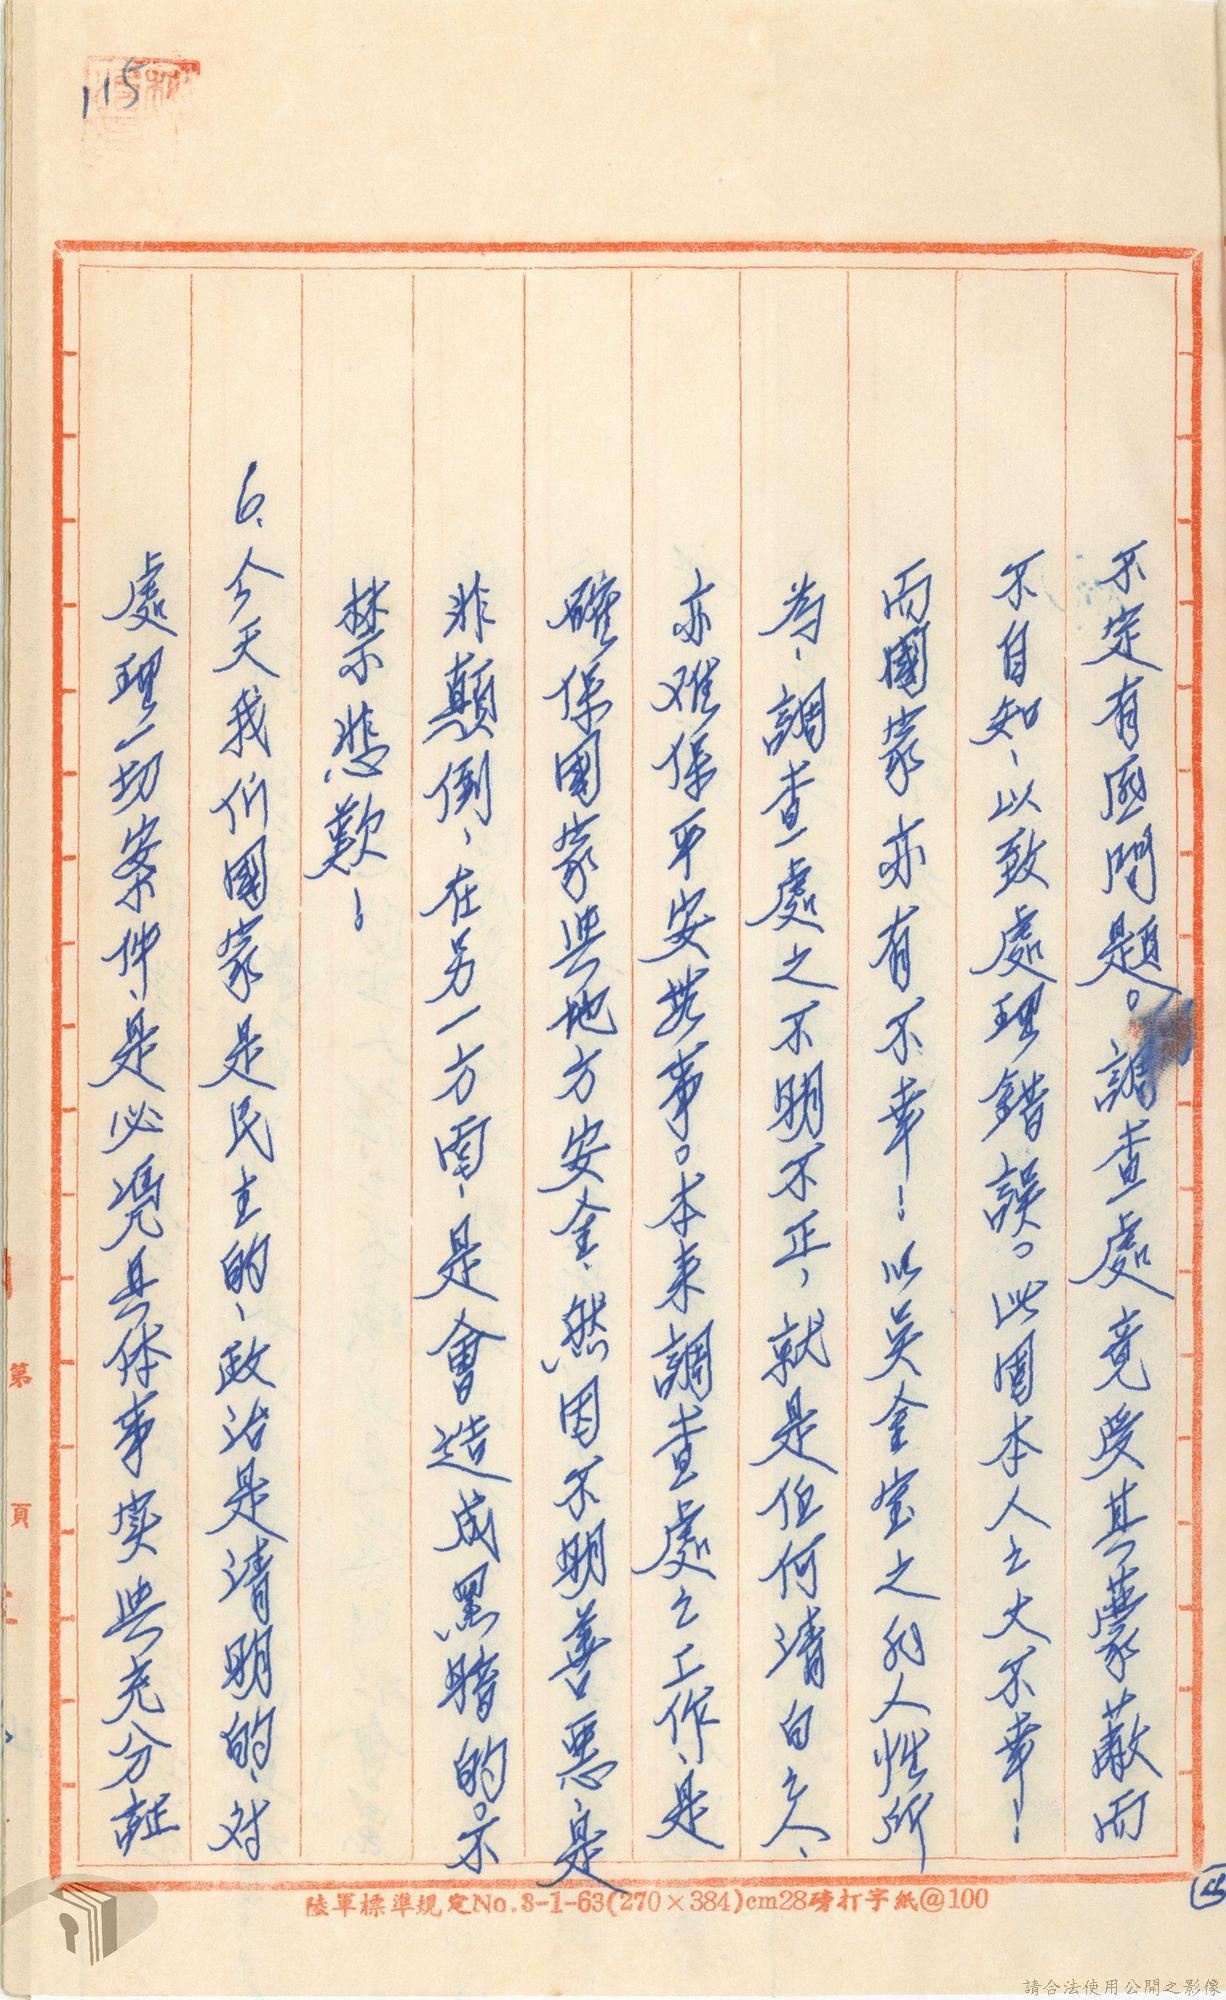 115
不定有啚問題。調查處竟受其蒙蔽而
不自知、以致處理錯誤。此固本人之大不幸！
而國家亦有不幸！以吳金宝之私人性所
為、調查處之不明不正，就是任何清白之人、
亦难保平安無事。本来調查處之工作、是
確保國家與地方安全、然因不明善惡、是
非顛倒、在另一方面、是會造成黑暗的。不
禁悲歎！
6. 今天我们國家是民主的、政治是清明的、对
處理一切案件、是必凴具体事实與充分証
第 頁
陸軍標準規定No.3-1-63(270×384)cm28磅打字紙@100
請合法使用公開之影像